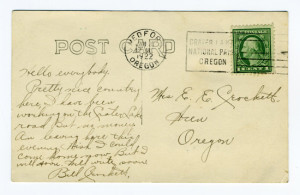 POST CARD
MEDFORD
1922
OREGON
NATIONAL PARK
OREGON
Hello everybody
Pretty nice country
here, I have been
working on the Crater Lake
road but no money
Am leaving here this
evening. Wish I could
come home now But I
will some day will write soon
Bill Crockett
Mrs. E. E. Crockett
Oregon